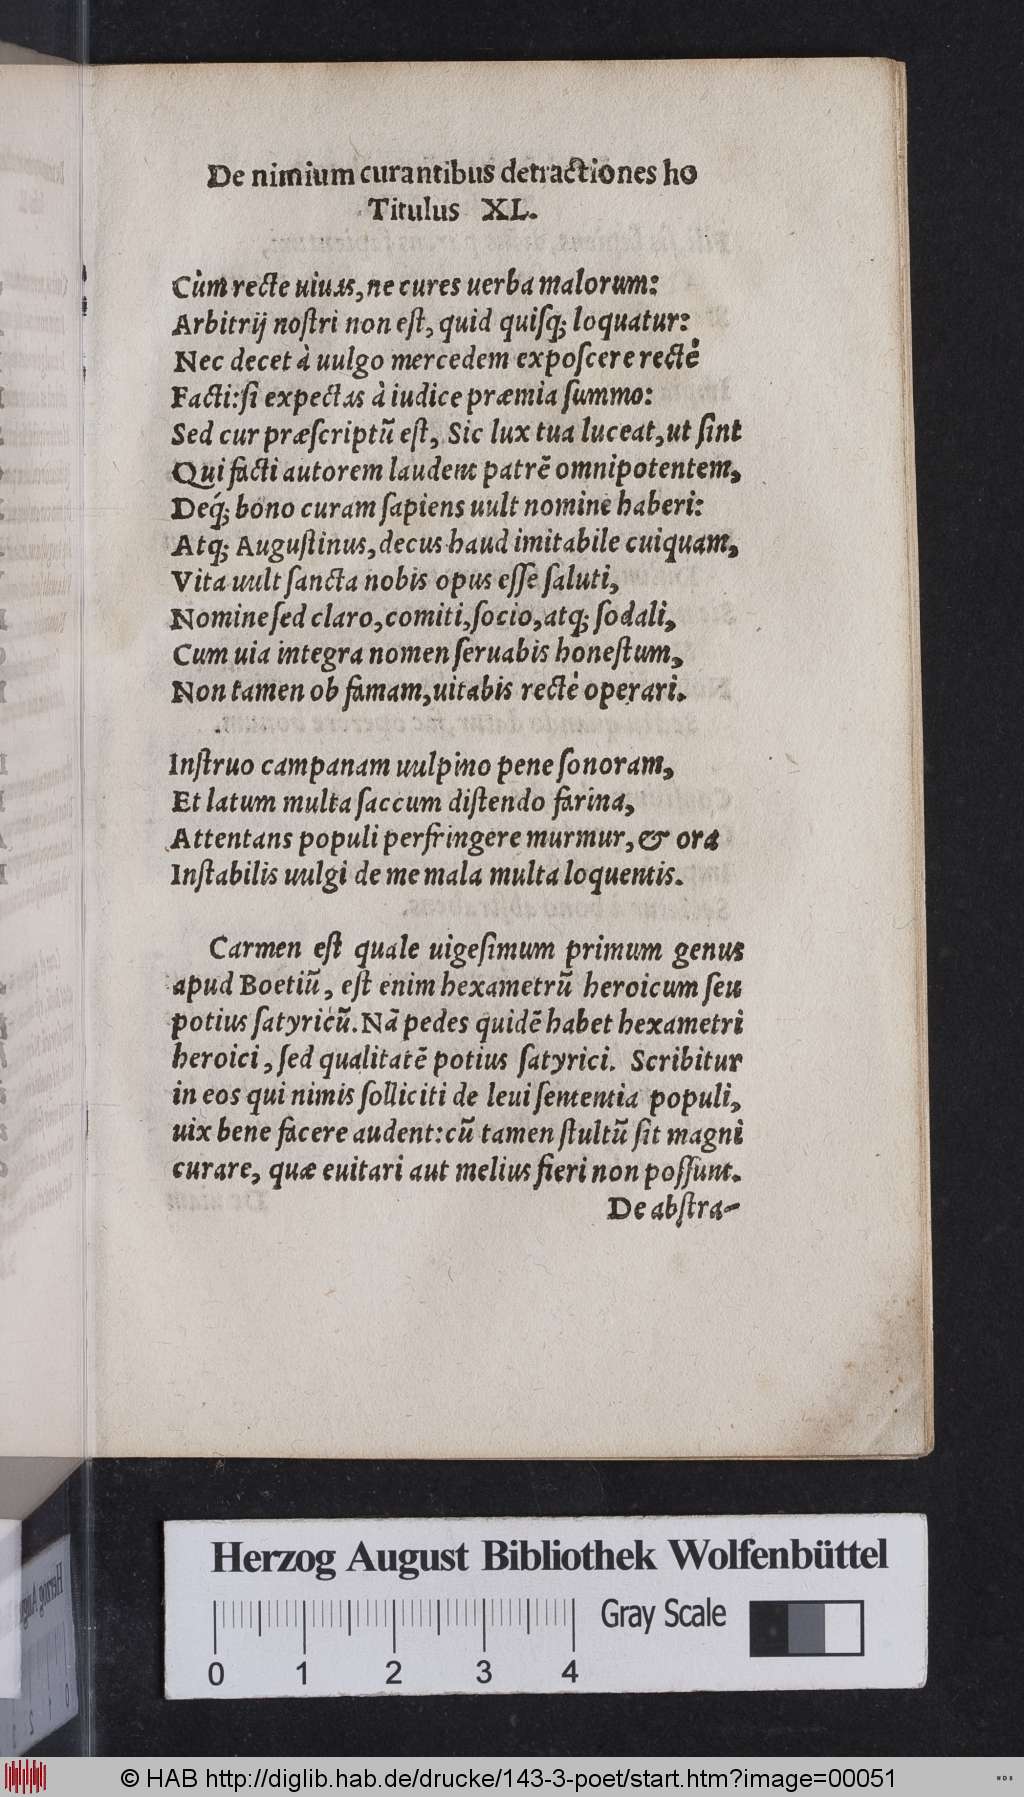 De nimium curantibus detractiones ho
Titulus XL.
Cùm recte uiuas, ne cures uerba malorum:
Arbitrij noſtri non eſt, quid quiſq; loquatur:
Nec decet à uulgo mercedem expoſcere rectè
Facti: ſi expectas à iudice præmia ſummo:
Sed cur præſcriptũ eſt, Sic lux tua luceat, ut ſint
Qui facti autorem laudent patrẽ omnipotentem,
Deq́; bono curam ſapiens uult nomine haberi:
Atq; Auguſtinus, decus haud imitabile cuiquam,
Vita uult ſancta nobis opus eſſe ſaluti,
Nomine ſed claro, comiti, ſocio, atq; ſodali,
Cum uia integra nomen ſeruabis honeſtum,
Non tamen ob famam, uitabis rectè operari.
Inſtruo campanam uulpino pene ſonoram,
Et latum multa ſaccum diſtendo farina,
Attentans populi perfringere murmur, & ora
Inſtabilis uulgi de me mala multa loquentis.
Carmen eſt quale uigeſimum primum genus
apud Boetiũ, eſt enim hexametrũ heroicum ſeu
potius ſatyricũ. Nã pedes quidẽ habet hexametri
heroici, ſed qualitatẽ potius ſatyrici. Scribitur
in eos qui nimis ſolliciti de leui ſententia populi,
uix bene facere audent: cũ tamen ſtultũ ſit magni
curare, quæ euitari aut melius fieri non poſſunt.
De abſtra-
Herzog August Bibliothek Wolfenbüttel
Gray Scale
0 1 2 3 4
© HAB http://diglib.hab.de/drucke/143-3-poet/start.htm?image=00051